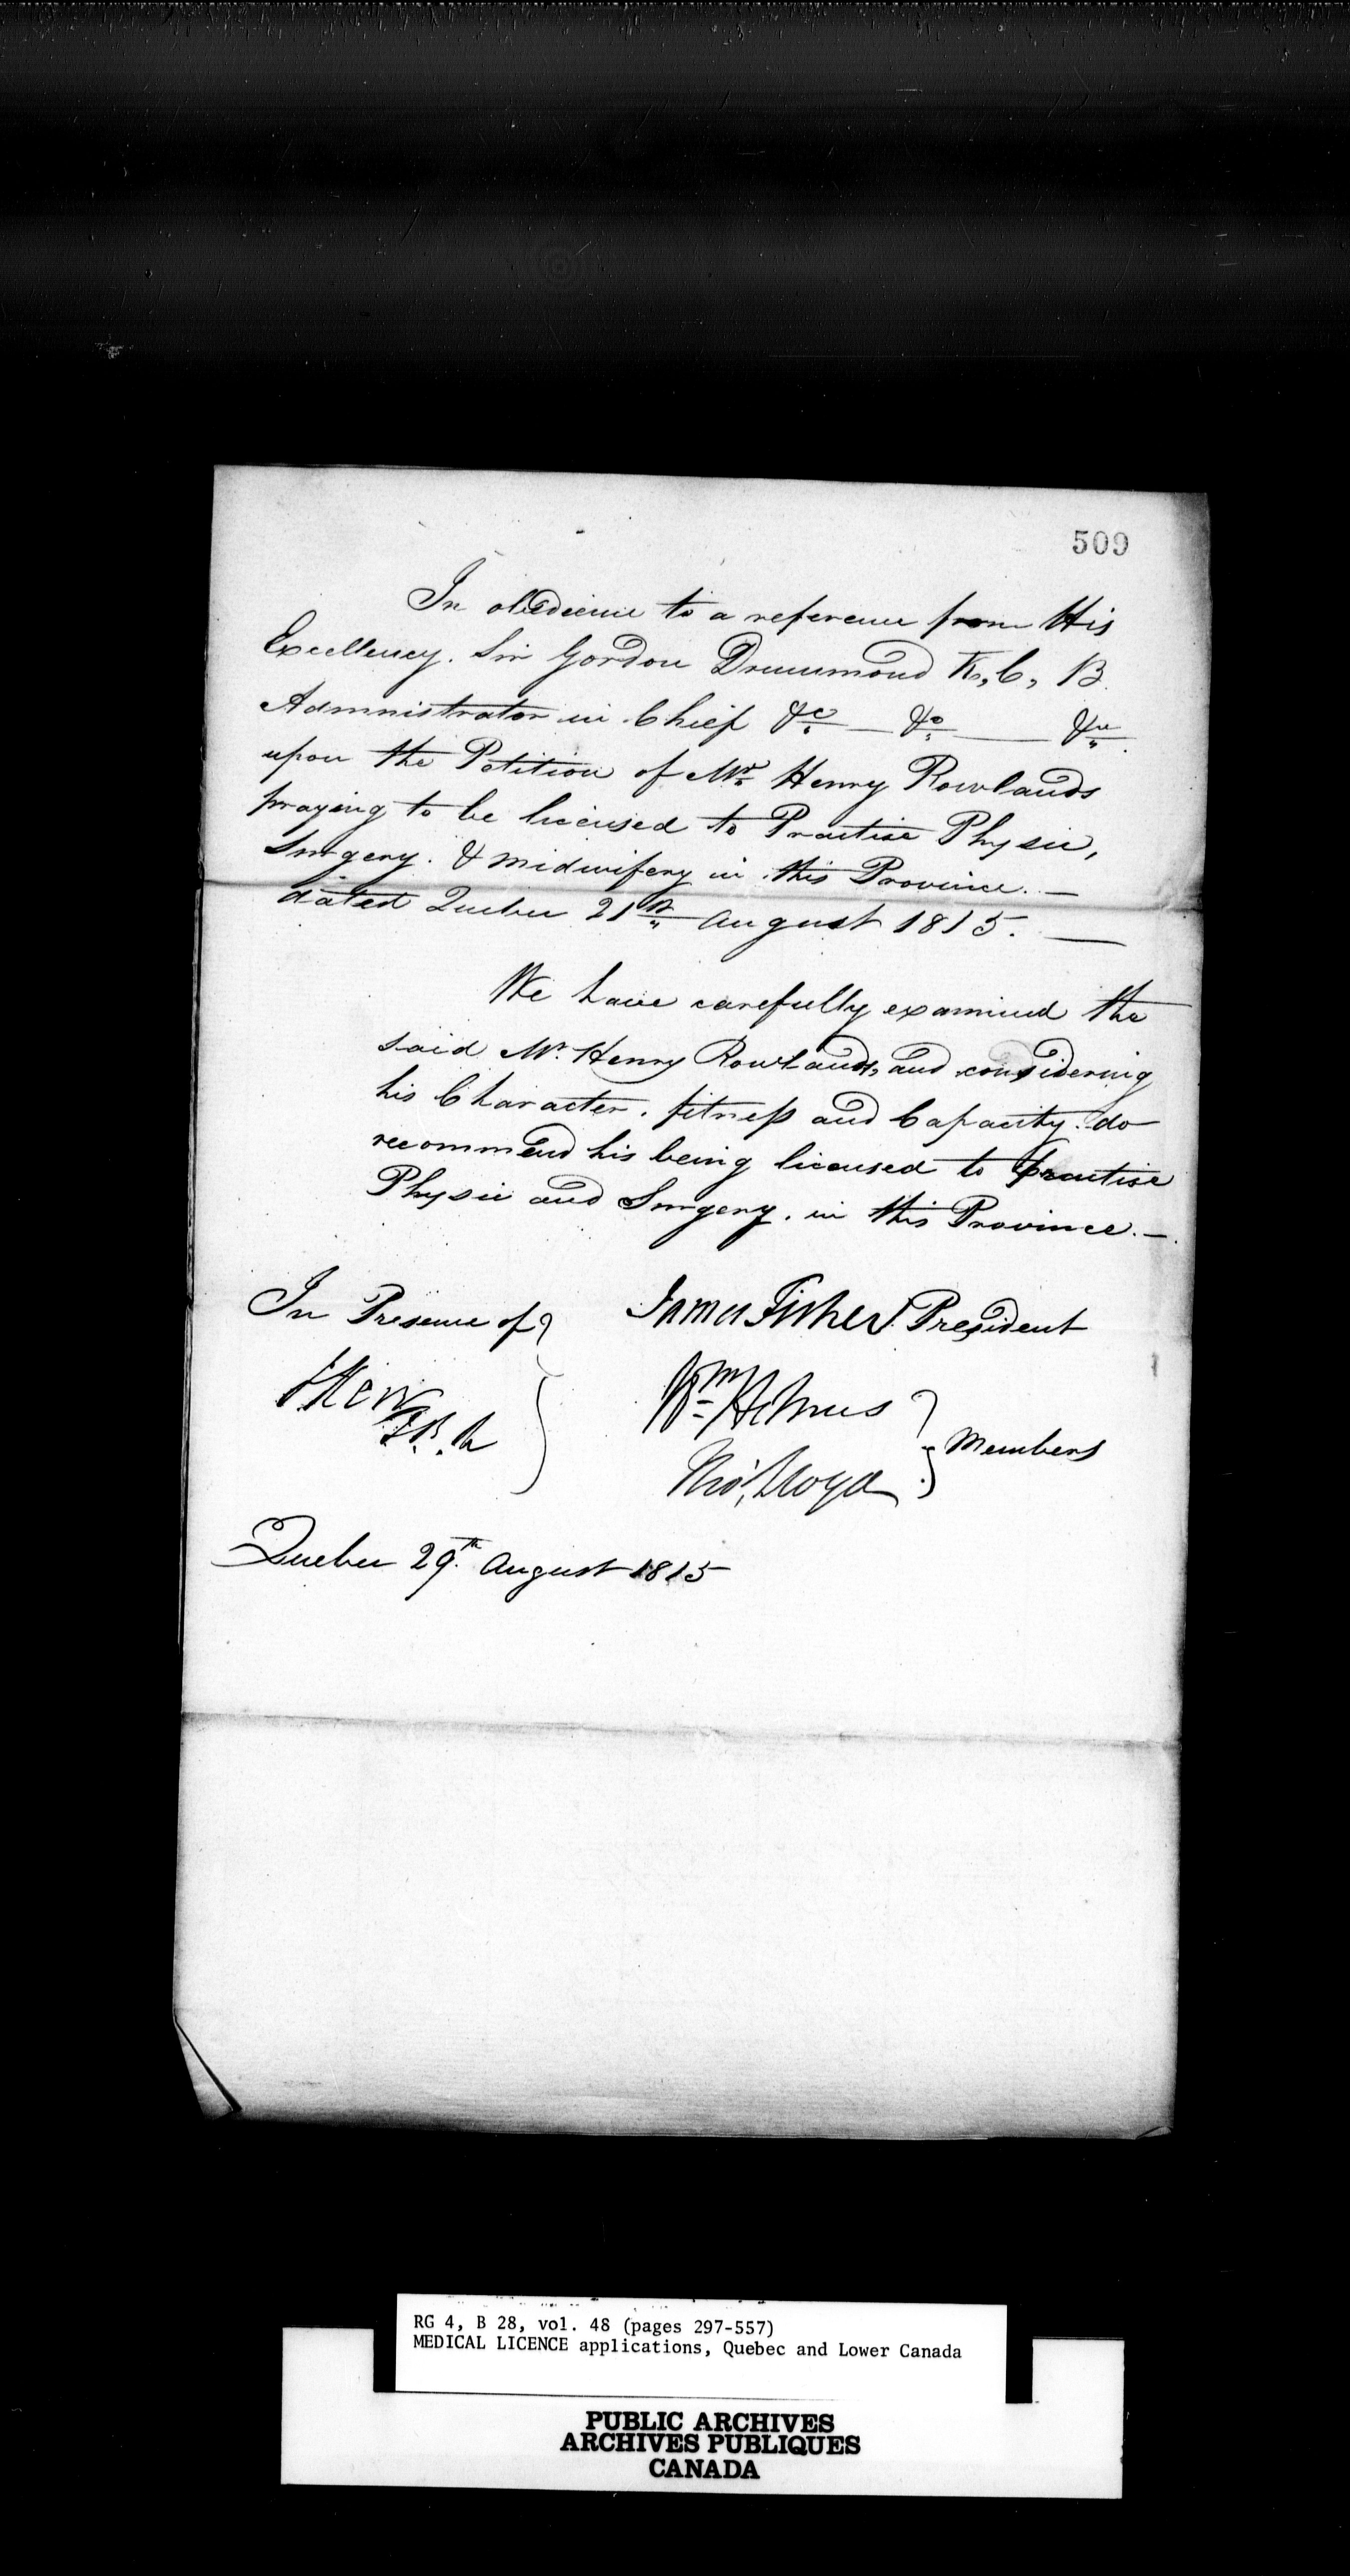 509
In obedience to a reference from His
Excellency. Sir Gordon Drummond K, C, B.
Admnistrator in Chief &c — &c — &c
upon the Petition of Mr Henry Rowlands
praying to be licensed to Practise Physic,
Surgery. & midwifery in this Province. —
dated Quebec 21st August 1815. —
We have carefully examined the
said Mr. Henry Rowlands, and considering
his Character. fitness and Capacity. do
recommend his being licensed to practise
Physic and Surgery. in this Province. —
In Presence of
James Fisher President
Wm Holmes
Members
Tho,s Lloyd
Quebec 29th August 1815
RG 4, B 28, vol. 48 (pages 297-557)
MEDICAL LICENCE applications, Quebec and Lower Canada
PUBLIC ARCHIVES
ARCHIVES PUBLIQUES
CANADA